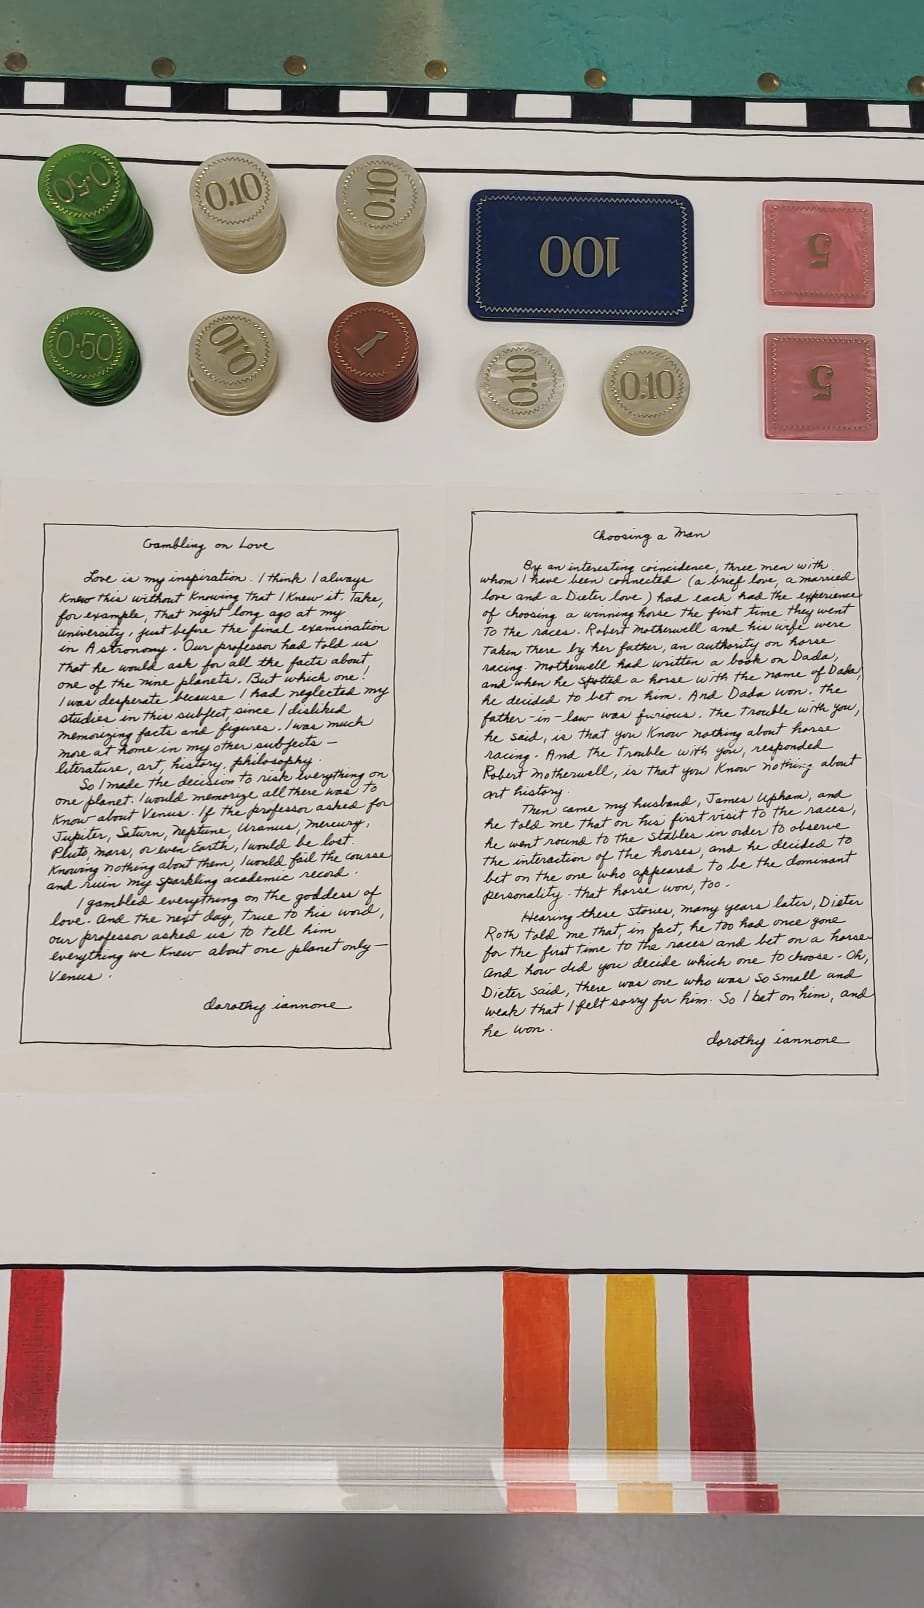 0.50
0.10
0.10
100
5
0.50
0.10
1
0.10
0.10
5
Gambling on Love
Love is my inspiration. I think I always
knew this without knowing that I knew it. Take,
for example, that night long ago at my
university, just before the final examination
in Astronomy. Our professor had told us
that he would ask for all the facts about
one of the nine planets. But which one!
I was desperate because I had neglected my
studies in this subject, since I disliked
memorizing facts and figures. I was much
more at home in my other subjects —
literature, art, history, philosophy.
So I made the decision to risk everything on
one planet. I would memorize all there was to
know about Venus. If the professor asked for
Jupiter, Saturn, Neptune, Uranus, Mercury,
Pluto, Mars, or even Earth, I would be lost.
Knowing nothing about them, I would fail the course
and ruin my sparkling academic record.
I gambled everything on the goddess of
love. And the next day, true to his word,
our professor asked us to tell him
everything we knew about one planet only —
Venus.
dorothy iannone
Choosing a Man
By an interesting coincidence, three men with
whom I have been connected (a brief love, a married
love and a Dieter love) had each had the experience
of choosing a winning horse the first time they went
to the races. Robert Motherwell and his wife were
taken there by her father, an authority on horse
racing. Motherwell had written a book on Dada,
and when he spotted a horse with the name of Dada,
he decided to bet on him. And Dada won. The
father-in-law was furious. The trouble with you,
he said, is that you know nothing about horse
racing. And the trouble with you, responded
Robert Motherwell, is that you know nothing about
art history.
Then came my husband, James Upham, and
he told me that on his first visit to the races,
he went round to the stables in order to observe
the interaction of the horses, and he decided to
bet on the one who appeared to be the dominant
personality. That horse won, too.
Hearing these stories, many years later, Dieter
Roth told me that, in fact, he too had once gone
for the first time to the races and bet on a horse.
And how did you decide which one to choose. Oh,
Dieter said, there was one who was so small and
weak that I felt sorry for him. So I bet on him, and
he won.
dorothy iannone